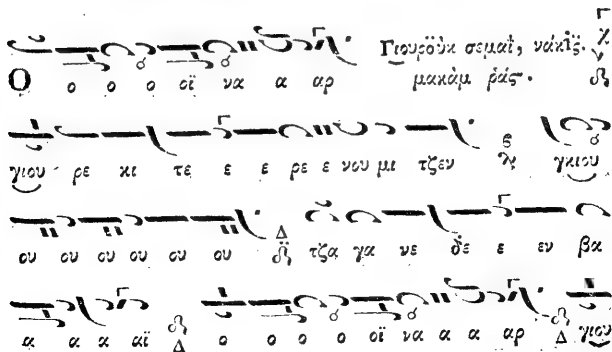 Γιουροῢκ σεμαΐ, νάκϊς.
Ὁ ο ο ο οϊ να α αρ μακὰμ ῥάς.
γιου ρε κι τε ε ε ρε ε νου μι τζεν γκιου
ου ου ου ου ου ου Δ τζα γα νε δε ε εν βα
α α α αϊ Δ ο ο ο ο οϊ να α α αρ Δ γιου